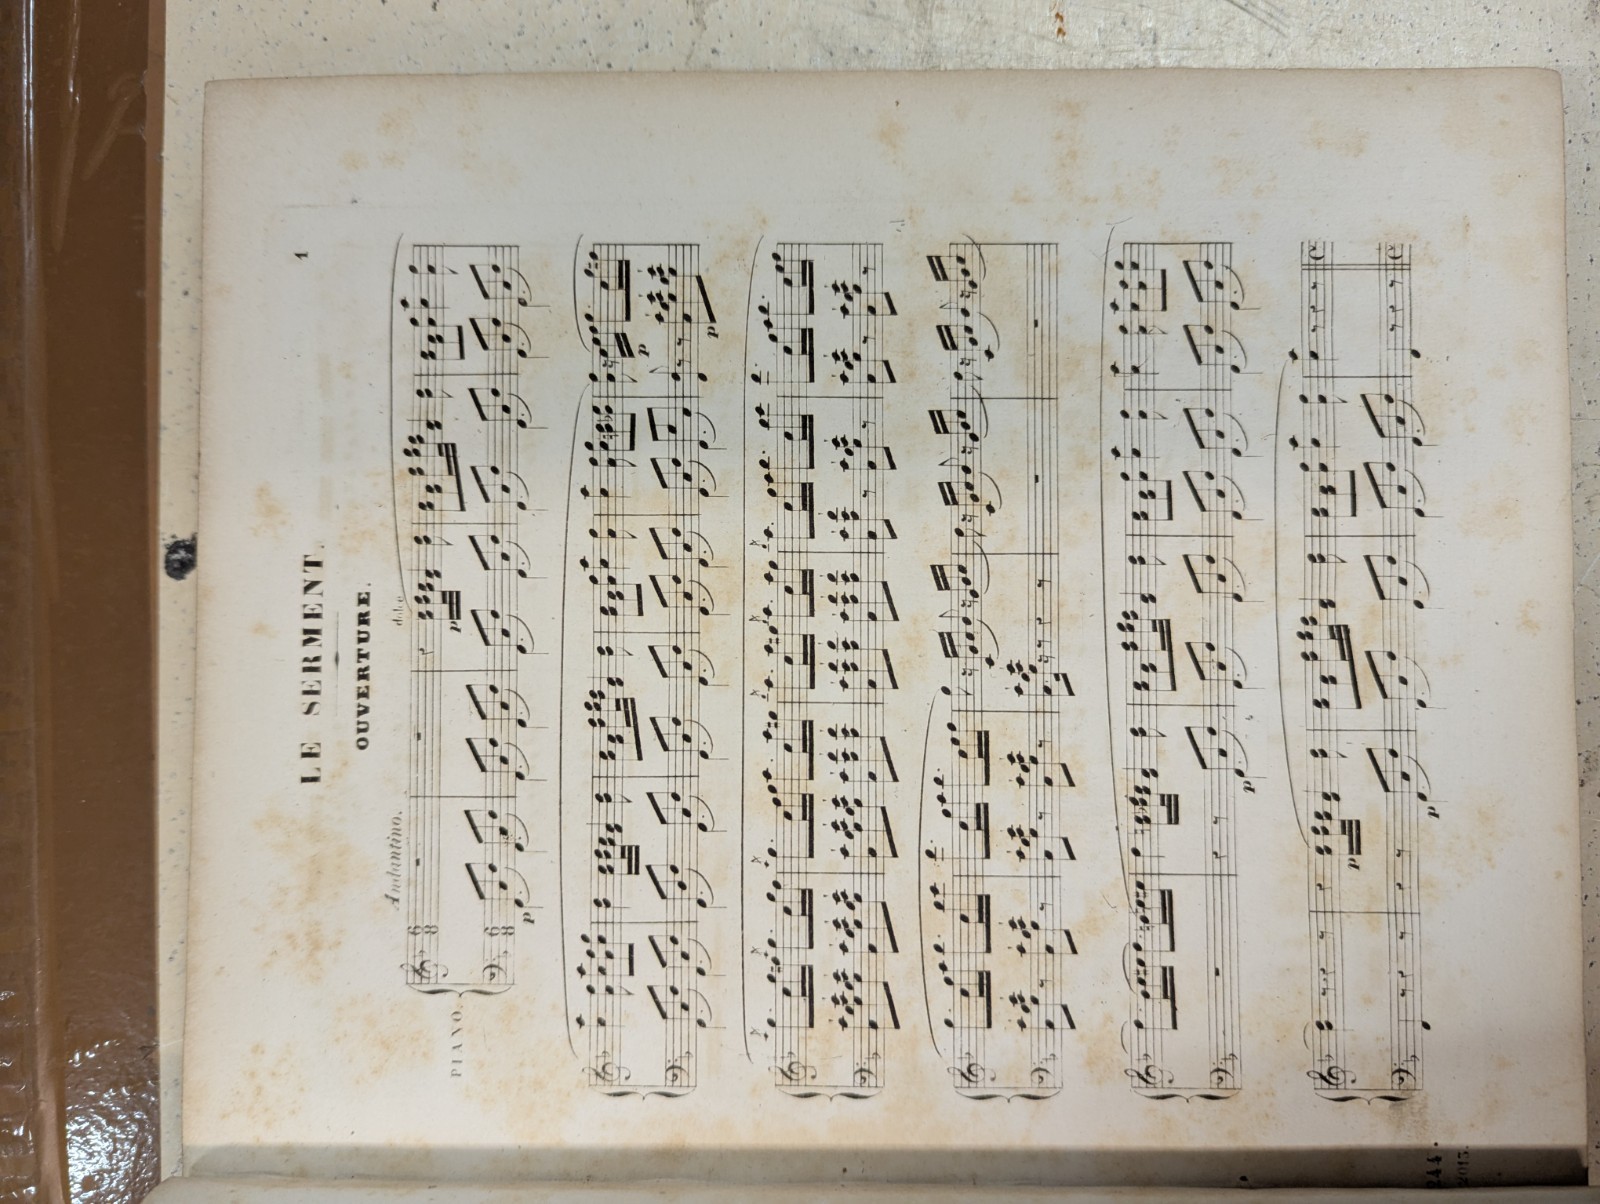 1
LE SERMENT.
OUVERTURE.
Andantino.
dolce
PIANO.
6
8
6
8
p
p
p
p
p
p
p
244.
2013.